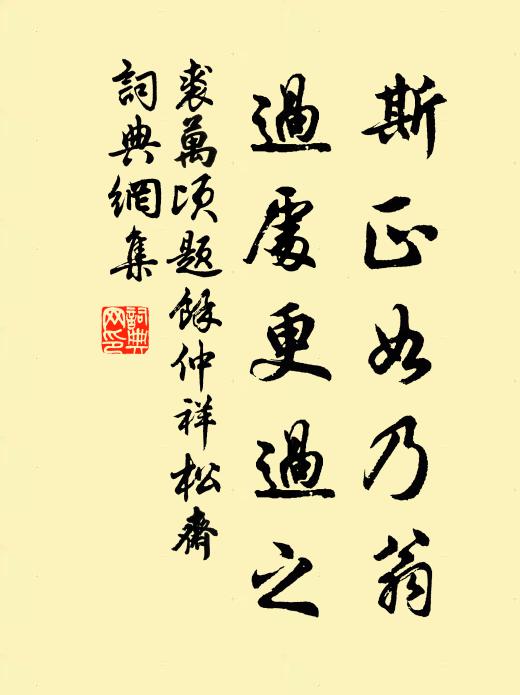 斯正如乃翁
過處更過之
裘萬頃題餘仲祥松齋
詞典網集
詞典网印